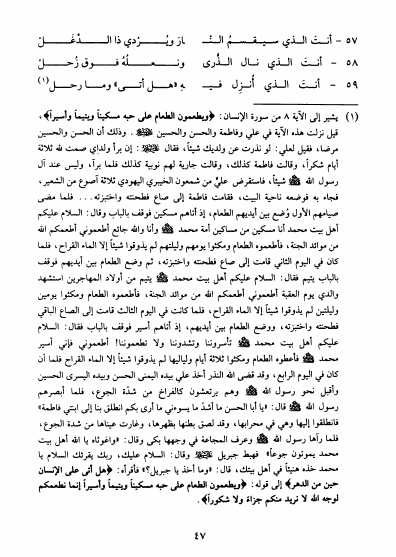 ٥٧ - أنتَ الذي سيقسم النُّـ ـارَ ويُردي ذا الدغل
٥٨ - أنتَ الذي نال الذُّرى ونعلُهُ فوق زُحل
٥٩ - أنتَ الذي أُنزِل فيـ ـهِ «هل أتى» وما رحل(١)
(١) يشير إلى الآية ٨ من سورة الإنسان: ﴿ويطعمون الطعام على حبه مسكيناً ويتيماً وأسيراً﴾،
قيل نزلت هذه الآية في علي وفاطمة والحسن والحسين ﷺ. وذلك أن الحسن والحسين
مرضا، فقيل لعلي: لو نذرت عن ولديك شيئاً، فقال ﷺ: إن برأ ولداي صمت لله ثلاثة
أيام شكراً، وقالت فاطمة كذلك، وقالت جارية لهم نوبية كذلك، فلما برآ، وليس عند آل
رسول الله ﷺ شيئاً، فاستقرض عليٌّ من شمعون الخيبري اليهودي ثلاثة آصوع من الشعير،
فجاء به فوضعه ناحية البيت، فقامت فاطمة إلى صاع فطحنته واختبزته... فلما مضى
صيامهم الأول وُضع بين أيديهم الطعام، إذ أتاهم مسكين فوقف بالباب وقال: السلام عليكم
أهل بيت محمد أنا مسكين من مساكين أمة محمد ﷺ وأنا والله جائع أطعموني أطعمكم الله
من موائد الجنة، فأطعموه الطعام ومكثوا يومهم وليلتهم لم يذوقوا شيئاً إلا الماء القراح، فلما
كان في اليوم الثاني قامت إلى صاع فطحنته واختبزته، ثم وضع الطعام بين أيديهم فوقف
بالباب يتيم فقال: السلام عليكم أهل بيت محمد ﷺ يتيم من أولاد المهاجرين استشهد
والدي يوم العقبة أطعموني أطعمكم الله من موائد الجنة، فأطعموه الطعام ومكثوا يومين
وليلتين لم يذوقوا شيئاً إلا الماء القراح، فلما كانت في اليوم الثالث قامت إلى الصاع الباقي
فطحنته واختبزته، ووضع الطعام بين أيديهم، إذ أتاهم أسير فوقف بالباب فقال: السلام
عليكم أهل بيت محمد ﷺ تأسروننا وتشدوننا ولا تطعموننا! أطعموني فإني أسير
محمد ﷺ فأعطوه الطعام ومكثوا ثلاثة أيام ولياليها لم يذوقوا شيئاً إلا الماء القراح فلما أن
كان في اليوم الرابع، وقد قضى الله النذر أخذ علي بيده اليمنى الحسن وبيده اليسرى الحسين
وأقبل نحو رسول الله ﷺ وهم يرتعشون كالفراخ من شدّة الجوع، فلما أبصرهم
رسول الله ﷺ قال: «يا أبا الحسن ما أشدّ ما يسوءني ما أرى بكم انطلق بنا إلى ابنتي فاطمة»
فانطلقوا إليها وهي في محرابها، وقد لصق بطنها بظهرها، وغارت عيناها من شدة الجوع،
فلما رآها رسول الله ﷺ وعرف المجاعة في وجهها بكى وقال: «واغوثاه يا الله أهل بيت
محمد يموتون جوعاً» فهبط جبريل ﷺ وقال: السلام عليك، ربك يقرئك السلام يا
محمد خذه هنيئاً في أهل بيتك، قال: «وما آخذ يا جبريل؟» فأقرأه: ﴿هل أتى على الإنسان
حين من الدهر﴾ إلى قوله: ﴿ويطعمون الطعام على حبه مسكيناً ويتيماً وأسيراً إنما نطعمكم
لوجه الله لا نريد منكم جزاءً ولا شكوراً﴾.
٤٧